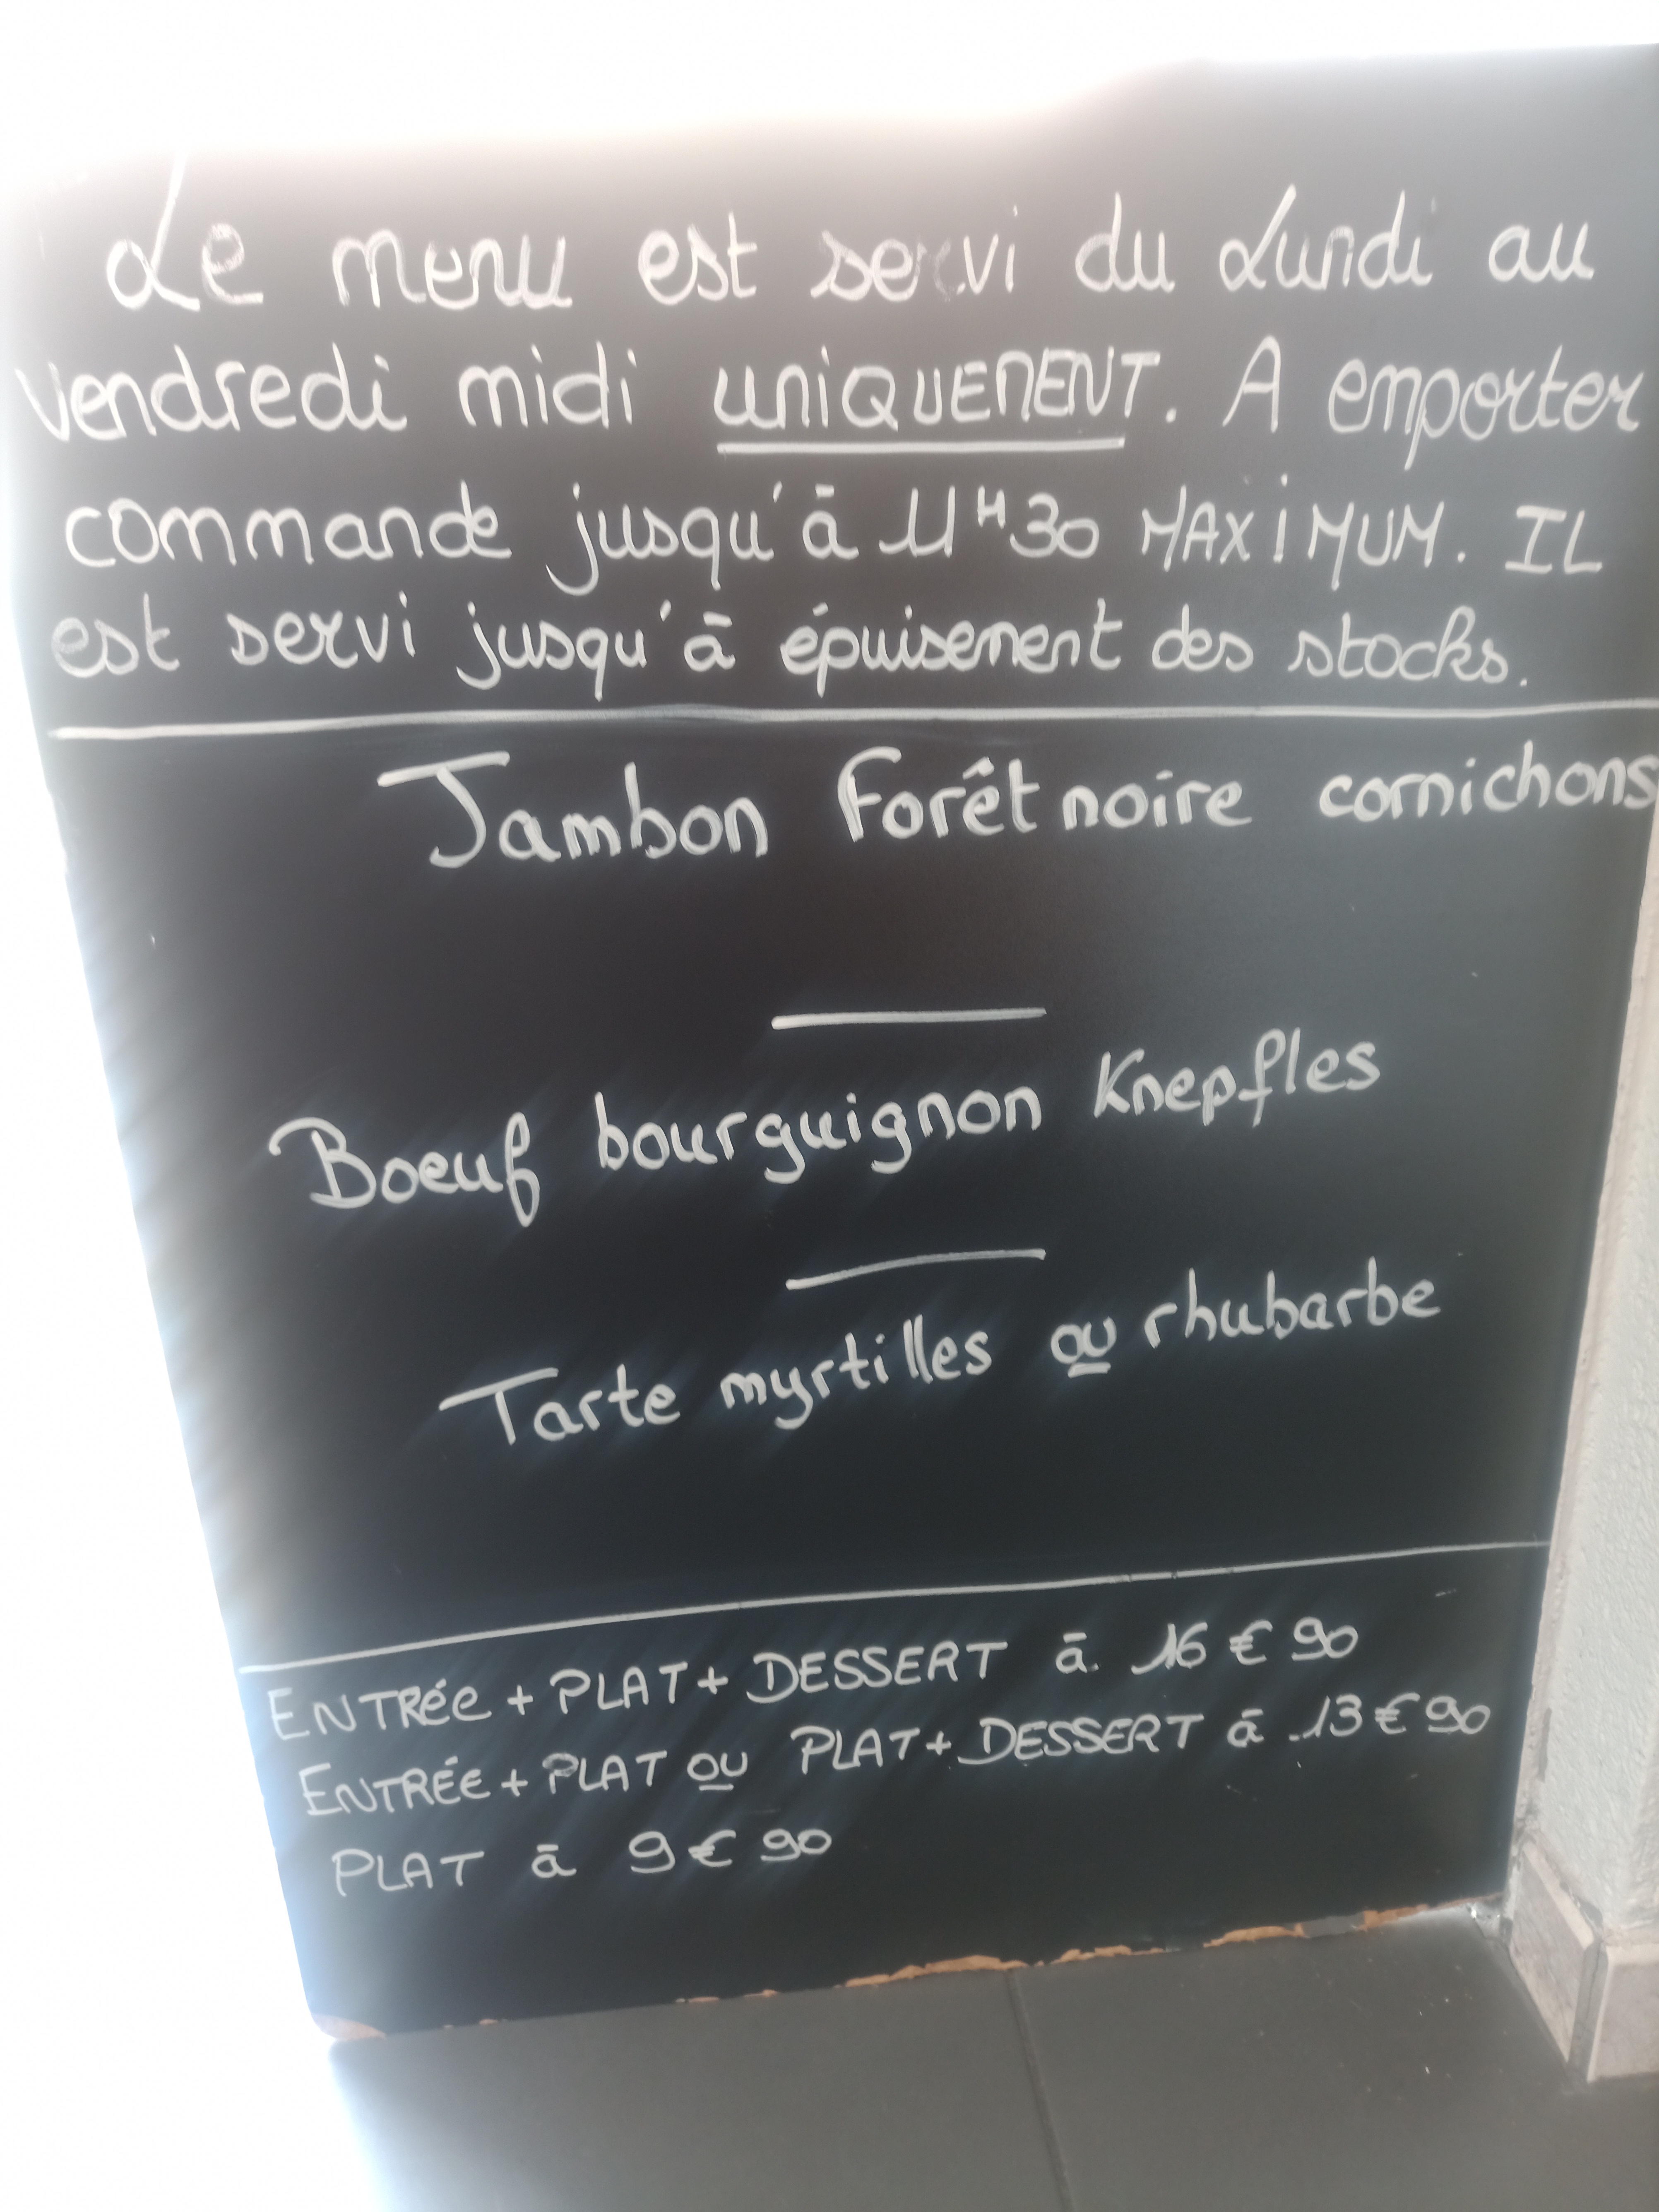 Le menu est servi du Lundi au
vendredi midi UNIQUEMENT. A emporter
commande jusqu'à 11H30 MAXIMUM. IL
est servi jusqu'à épuisement des stocks.
Jambon Forêt noire cornichons
Boeuf bourguignon Knepfles
Tarte myrtilles ou rhubarbe
ENTRÉE + PLAT + DESSERT à 16€90
ENTRÉE + PLAT OU PLAT + DESSERT à 13€90
PLAT à 9€90